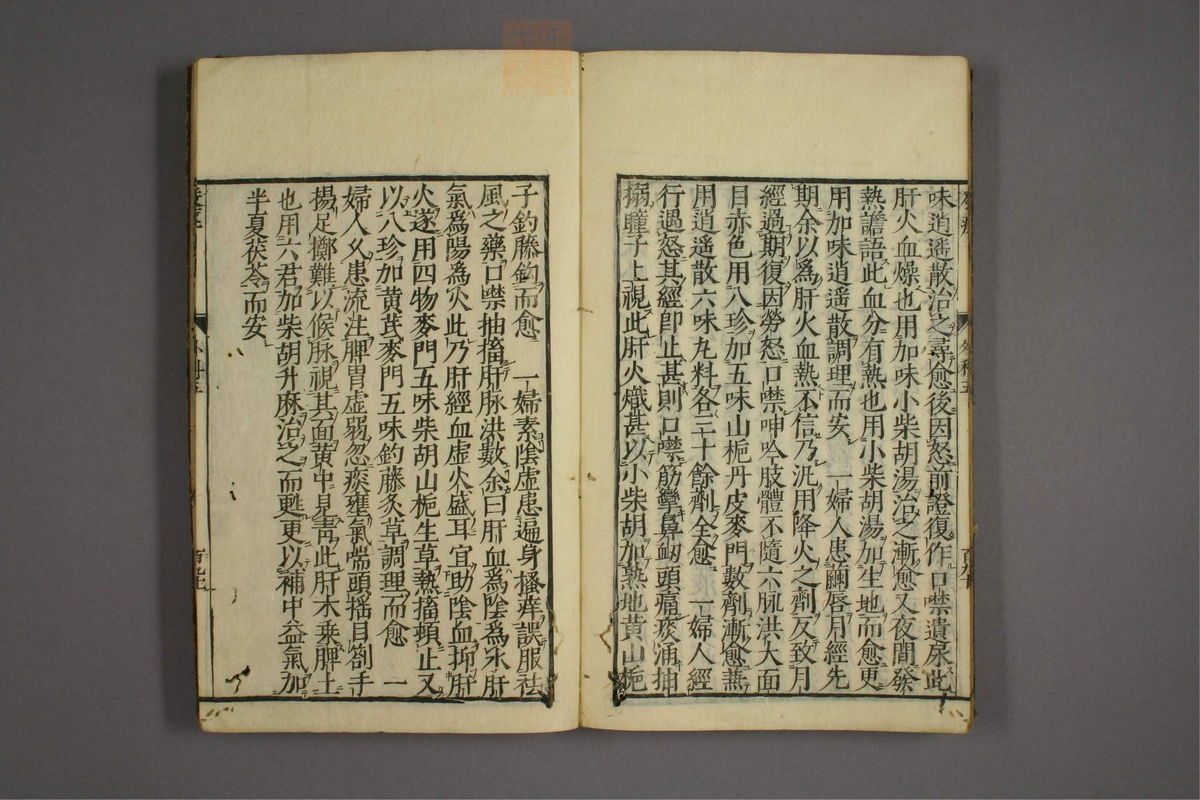 味逍遙散治之尋愈後因怒前證復作口噤遺尿此
肝火血燥也用加味小柴胡湯治之漸愈又夜間發
熱譫語此血分有熱也用小柴胡湯加生地而愈更
用加味逍遙散調理而安 一婦人患繭唇月經先
期余以爲肝火血熱不信乃汎用降火之劑反致月
經過期復因勞怒口噤呻吟肢體不隨六脉洪大面
目赤色用八珍加五味山梔丹皮麥門數劑漸愈兼
用逍遙散六味丸料各三十餘劑全愈 一婦人經
行遇怒其經卽止甚則口噤筋攣鼻衂頭痛痰涌抽
搦瞳子上視此肝火熾甚以小柴胡加熟地黃山梔
子釣藤鈎而愈 一婦素陰虛患遍身搔痒誤服祛
風之藥口噤抽搐肝脉洪數余曰肝血爲陰爲水肝
氣爲陽爲火此乃肝經血虛火盛耳宜助陰血抑肝
火遂用四物麥門五味柴胡山梔生草熱搐頓止又
以八珍加黃芪麥門五味釣藤炙草調理而愈 一
婦人久患流注脾胃虛弱忽痰壅氣喘頭搖目劄手
揚足擲難以候脉視其面黃中見靑此肝木乗脾土
也用六君加柴胡升麻治之而甦更以補中益氣加
半夏茯苓而安